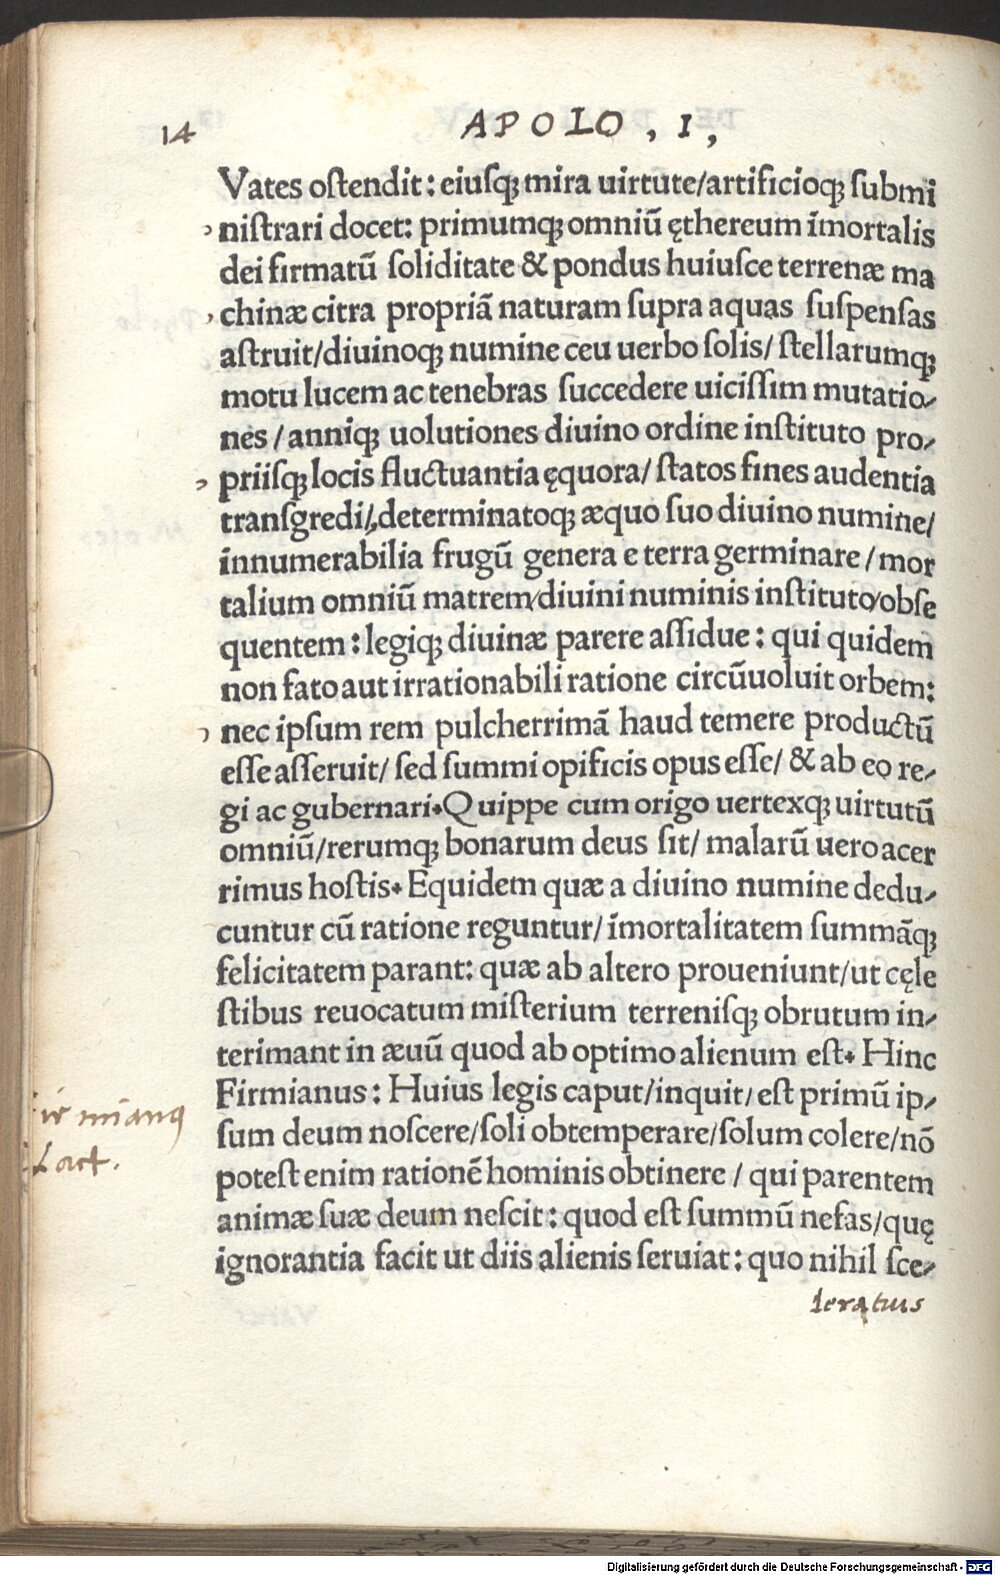 14
APOLO , I ,
Vates oſtendit: eiuſqꝫ mira uirtute/artificioqꝫ ſubmi
niſtrari docet: primumqꝫ omniũ ęthereum ĩmortalis
dei firmatũ ſoliditate & pondus huiuſce terrenæ ma
chinæ citra propriã naturam ſupra aquas ſuſpenſas
aſtruit/diuinoqꝫ numine ceu uerbo ſolis/ ſtellarumqꝫ
motu lucem ac tenebras ſuccedere uiciſſim mutatio/
nes / anniqꝫ uolutiones diuino ordine inſtituto pro/
priiſqꝫ locis fluctuantia ęquora/ ſtatos fines audentia
tranſgredi/,determinatoqꝫ æquo ſuo diuino numine/
innumerabilia frugũ genera e terra germinare / mor
talium omniũ matrem/diuini numinis inſtituto/obſe
quentem: legiqꝫ diuinæ parere aſſidue: qui quidem
non fato aut irrationabili ratione circũuoluit orbem:
nec ipſum rem pulcherrimã haud temere productũ
eſſe aſſeruit/ ſed ſummi opificis opus eſſe/ & ab eo re/
gi ac gubernari. Quippe cum origo uertexqꝫ uirtutũ
omniũ/rerumqꝫ bonarum deus ſit/ malarũ uero acer
rimus hoſtis. Equidem quæ a diuino numine dedu/
cuntur cũ ratione reguntur/ ĩmortalitatem ſummãqꝫ
felicitatem parant: quæ ab altero proueniunt/ut cęle
ſtibus reuocatum miſterium terreniſqꝫ obrutum in/
terimant in æuũ quod ab optimo alienum eſt. Hinc
Firmianus: Huius legis caput/inquit/ eſt primũ ip/
ſum deum noſcere/ſoli obtemperare/ſolum colere/nõ
poteſt enim rationẽ hominis obtinere / qui parentem
animæ ſuæ deum neſcit: quod eſt ſummũ nefas/quę
ignorantia facit ut diis alienis ſeruiat: quo nihil ſce/
leratius
Firmianus
Lact.
Digitalisierung gefördert durch die Deutsche Forschungsgemeinschaft - DFG